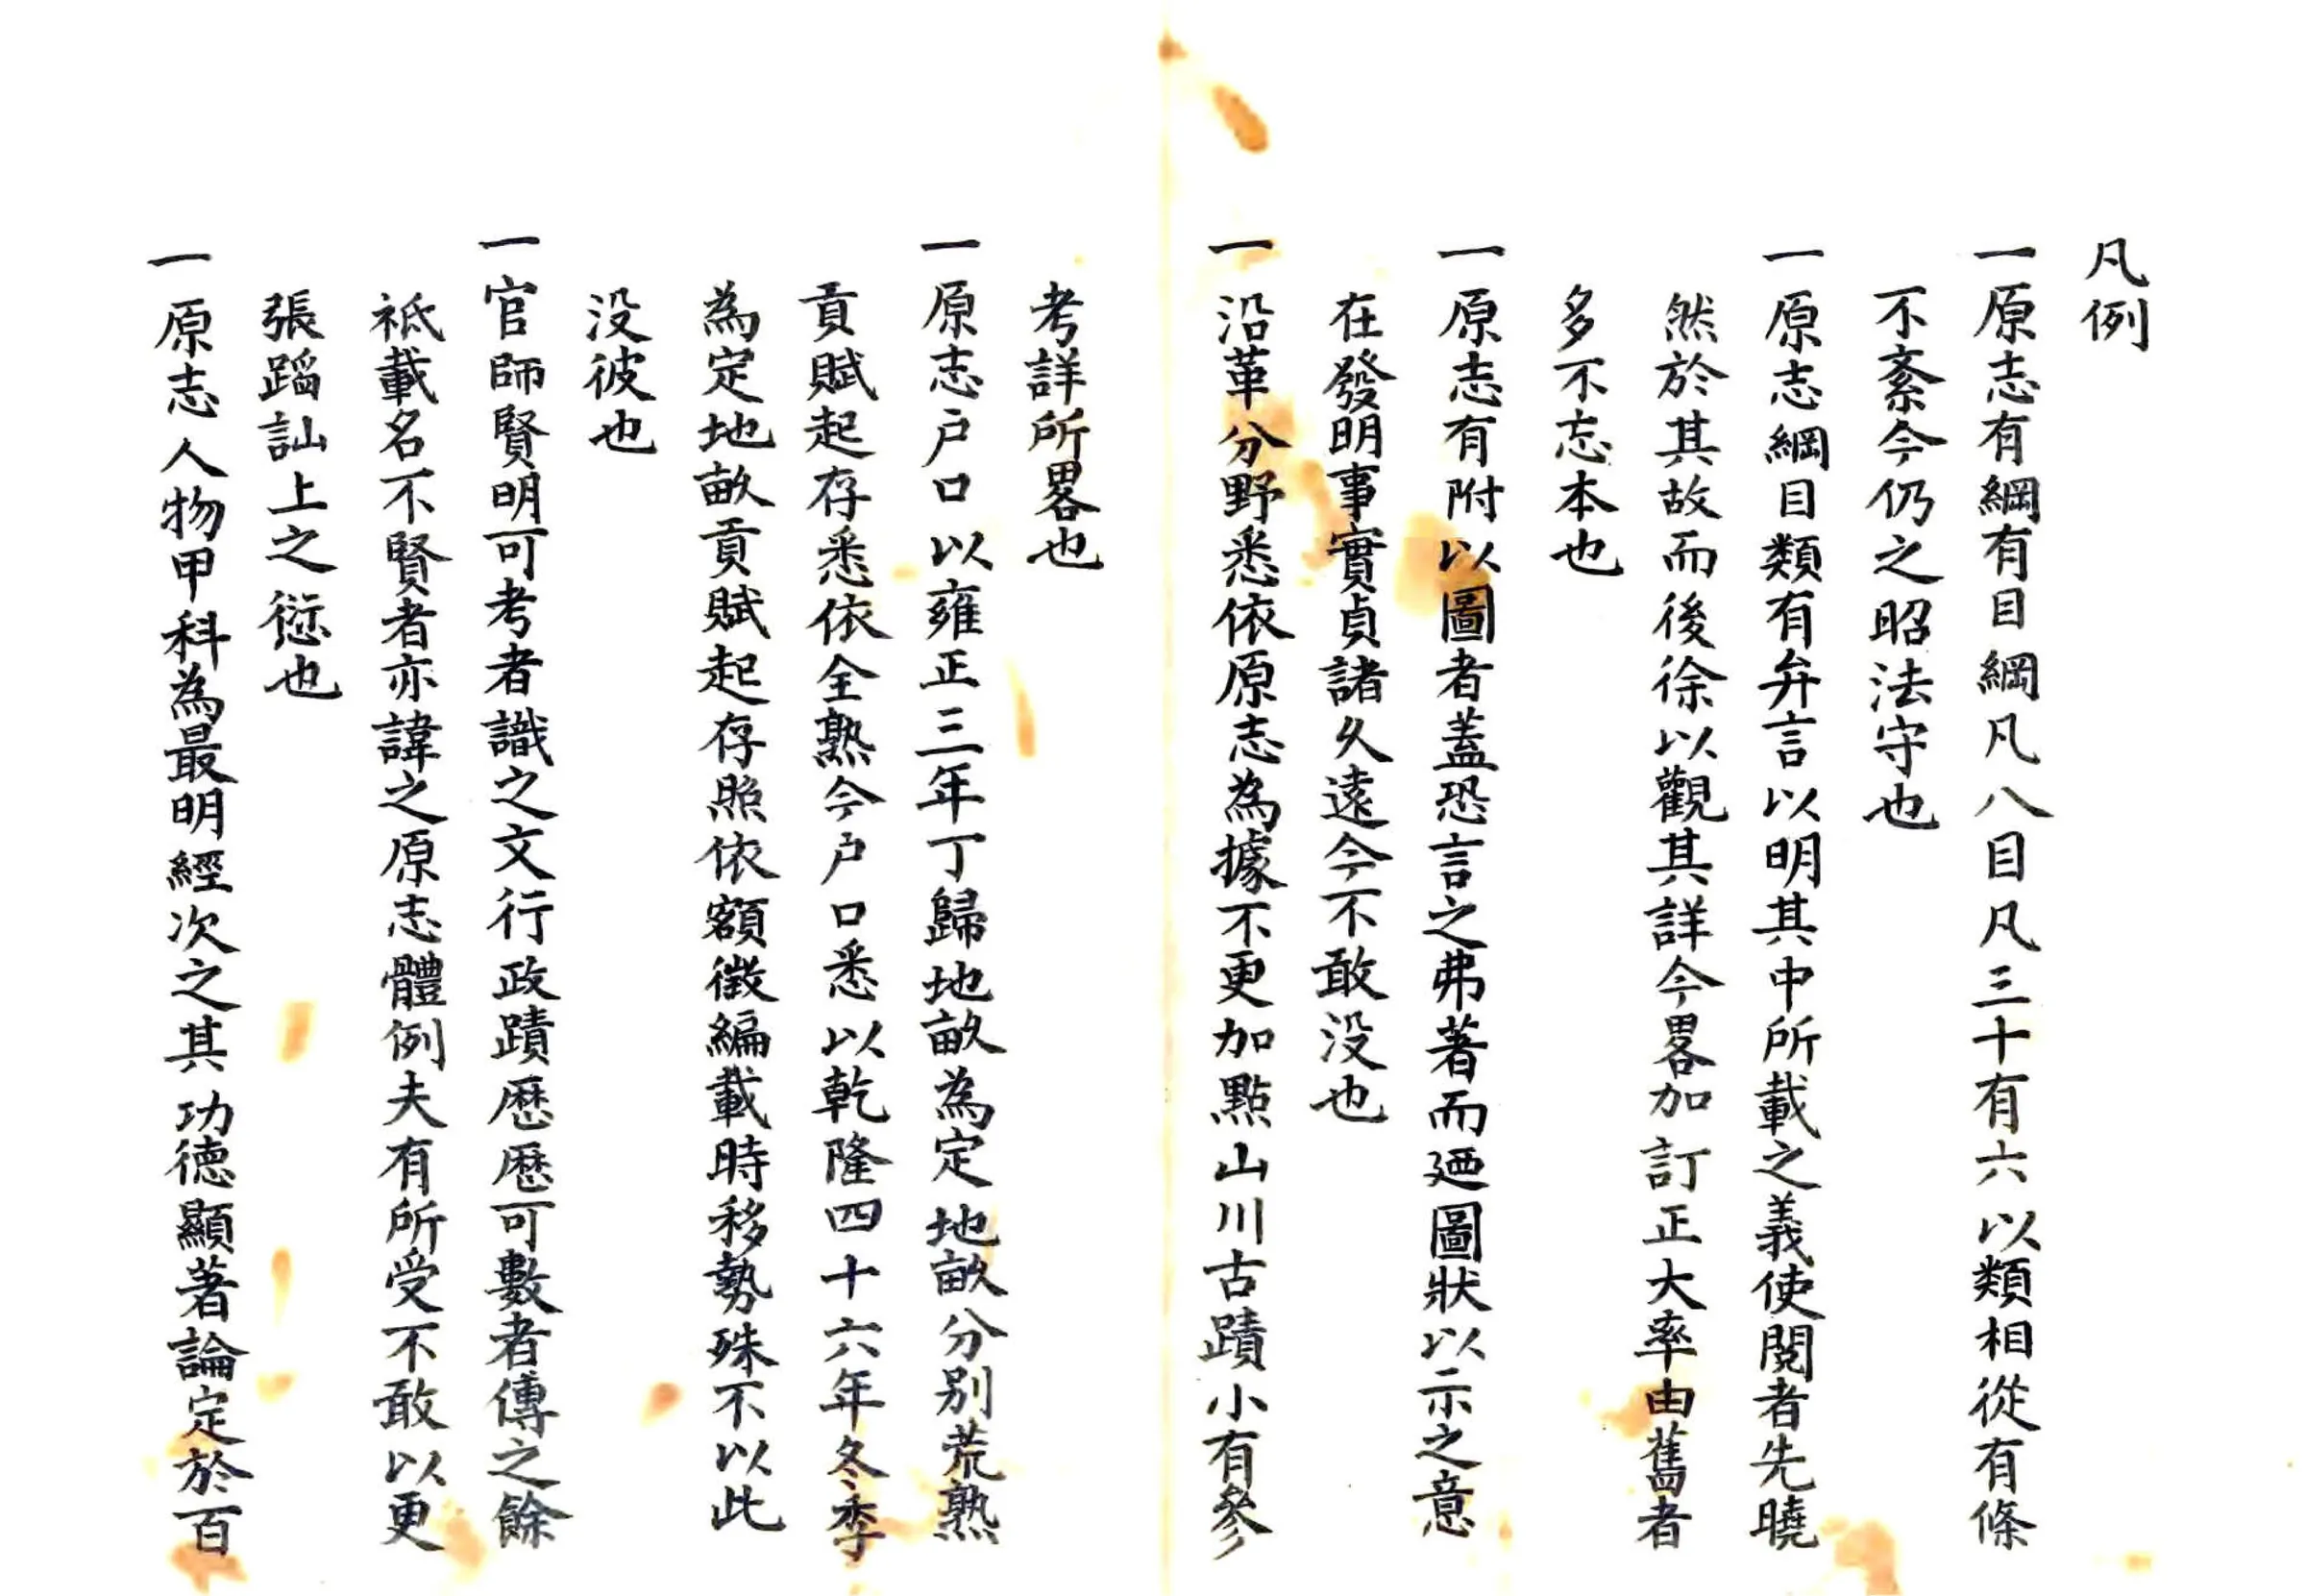 凡例
一原志有綱有目綱凡八目凡三十有六以類相從有條
不紊今仍之昭法守也
一原志綱目類有弁言以明其中所載之義使閱者先曉
然於其故而後徐以觀其詳今畧加訂正大率由舊者
多不忘本也
一原志有附以圖者蓋恐言之弗著而廼圖狀以示之意
在發明事實貞諸久遠今不敢没也
一沿革分野悉依原志為據不更加點山川古蹟小有參
考詳所畧也
一原志户口以雍正三年丁歸地畝為定地畝分別荒熟
貢賦起存悉依全熟今户口悉以乾隆四十六年冬季
為定地畝貢賦起存照依額徵編載時移勢殊不以此
没彼也
一官師賢明可考者識之文行政蹟歷歷可數者傳之餘
祗載名不賢者亦諱之原志體例夫有所受不敢以更
張蹈訕上之愆也
一原志人物甲科為最明經次之其功德顯著論定於百